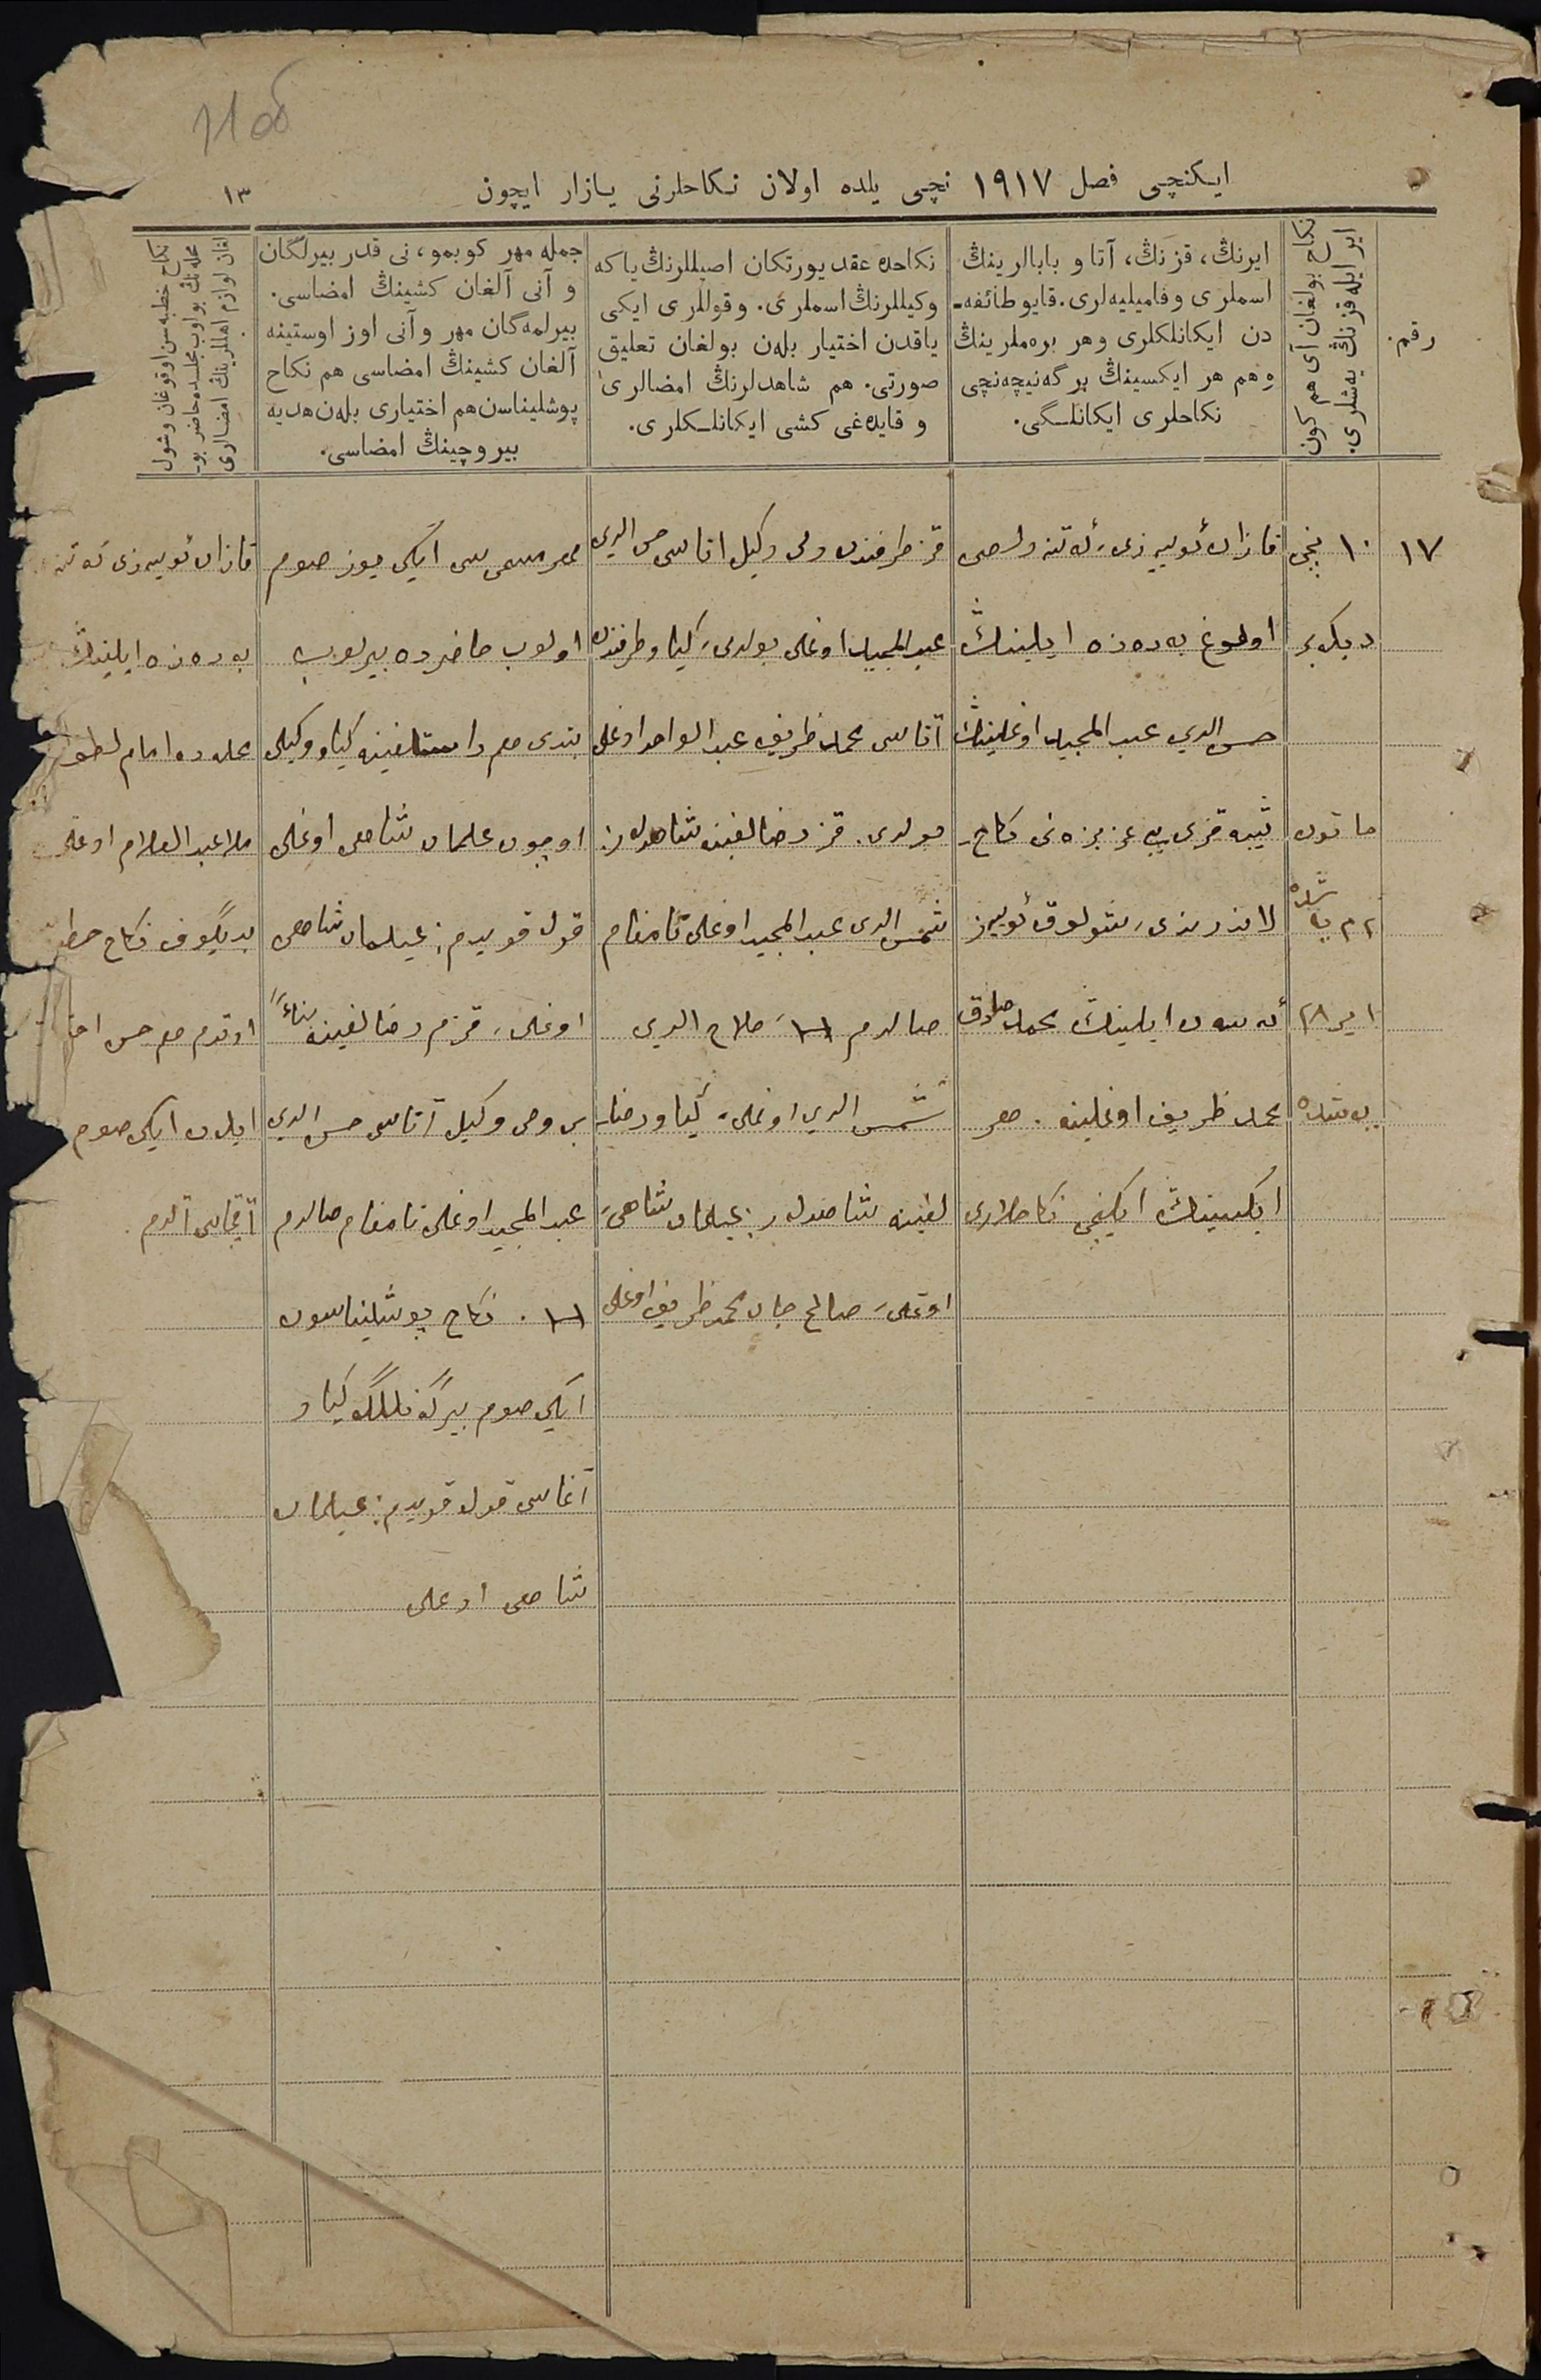 11 об
ایكنچی فصل ١٩١٧ نچی یلده اولان نكاحلرنی یازار ایچون
١٣
رقم.
نكاح بولغان آی هم كون
ایر ایله قزنڭ یه‌شلری.
ایرنڭ، قزنڭ، آتا و بابالرینڭ
اسملری وفامیلیه‌لری. قایو طائفه‌ـ
دن ایكانلكلری وهر بره‌ملرینڭ
وهم هر ایكسینڭ بر گه‌نیچه‌نچی
نكاحلری ایكانلـگی.
نكاحده عقد یورتكان اصیللرنڭ یا كه
وكیللرنڭ اسملری. وقوللری ایكی
یاقدن اختیار بله‌ن بولغان تعلیق
صورتی. هم شاهدلرنڭ امضالری
و قایده‌غی كشی ایكانلـكلری.
جمله مهر كوبمو، نی قدر بیرلگان
و آنی آلغان كشینڭ امضاسی.
بیرلمه‌گان مهر وآنی اوز اوستینه
آلغان كشینڭ امضاسی هم نكاح
پوشلیناسن هم اختیاری بله‌ن هدیه
بیروچینڭ امضاسی.
نكاح خطبه‌سن اوقوغان وشول
محله‌نڭ بواوب مجلسده حاضر بو-
لغان لوازم اهاللرینڭ امضالری
١٧
١٠ نچی
دیكبر
خاتون
٢٢ یاشده
ایر ٢٨
یه‌شده
قازان ئویه‌زی، ئه‌تنه ولصی
اولوغ بـه‌ره‌زه ایلینڭ
حسن الدین عبد المجید اوغلینڭ
ثیبه قزی بی‌بی عزیزه‌نی نكاح-
لاندردی، شولوق ئویه‌ز
ایلینڭ محمد صادق
محمد ظریف اوغلینه. هر
ایكسینڭ ایكنچی نكاحلاری
قز طرفندن ولی وكیل اتاسی حسن الدین
عبد المجید اوغلی بولدی، كیاو طرفندن
آتاسی محمد ظریف عبد الواحد اوغلی
بولدی. قز رضالغینه شاهدلر:
شمس الدین عبد المجید اوغلی تامغام
صالدم، صلاح الدین
شمس الدین اوغلی، كیاو رضا-
لغینه شاهدلر: عیلمان شاهی
اوغلی، صالح جان محمد ظریف اوغلی
مهر مسمی‌سی ایكی یوز صوم
اولوب حاضرده بیرلوب
بتدی هم راستلغینه كیاو وكیلی
اوچون عیلمان شاهی اوغلی
قول قویدم: عیلمان شاهی
اوغلی، قزم رضالغینه بناءً
بن ولی وكیل آتاسی حسن الدین
عبد المجید اوغلی تامغام صالدم
نكاح پوشلیناسون
ایكی صوم بیرگه‌نلكگه كیاو
آغاسی قول قویدم: عیلمان
شاهی اوغلی
قازان ئویه‌زی ئه‌تنه
بـه‌ره‌زه ایلینڭ
محله‌ده امام
ملا عبد العلام اوغلی
نكاح خطبه
اوقدم هم حسن
ایله‌ن ایكی صوم
آقچاسی آلدم.